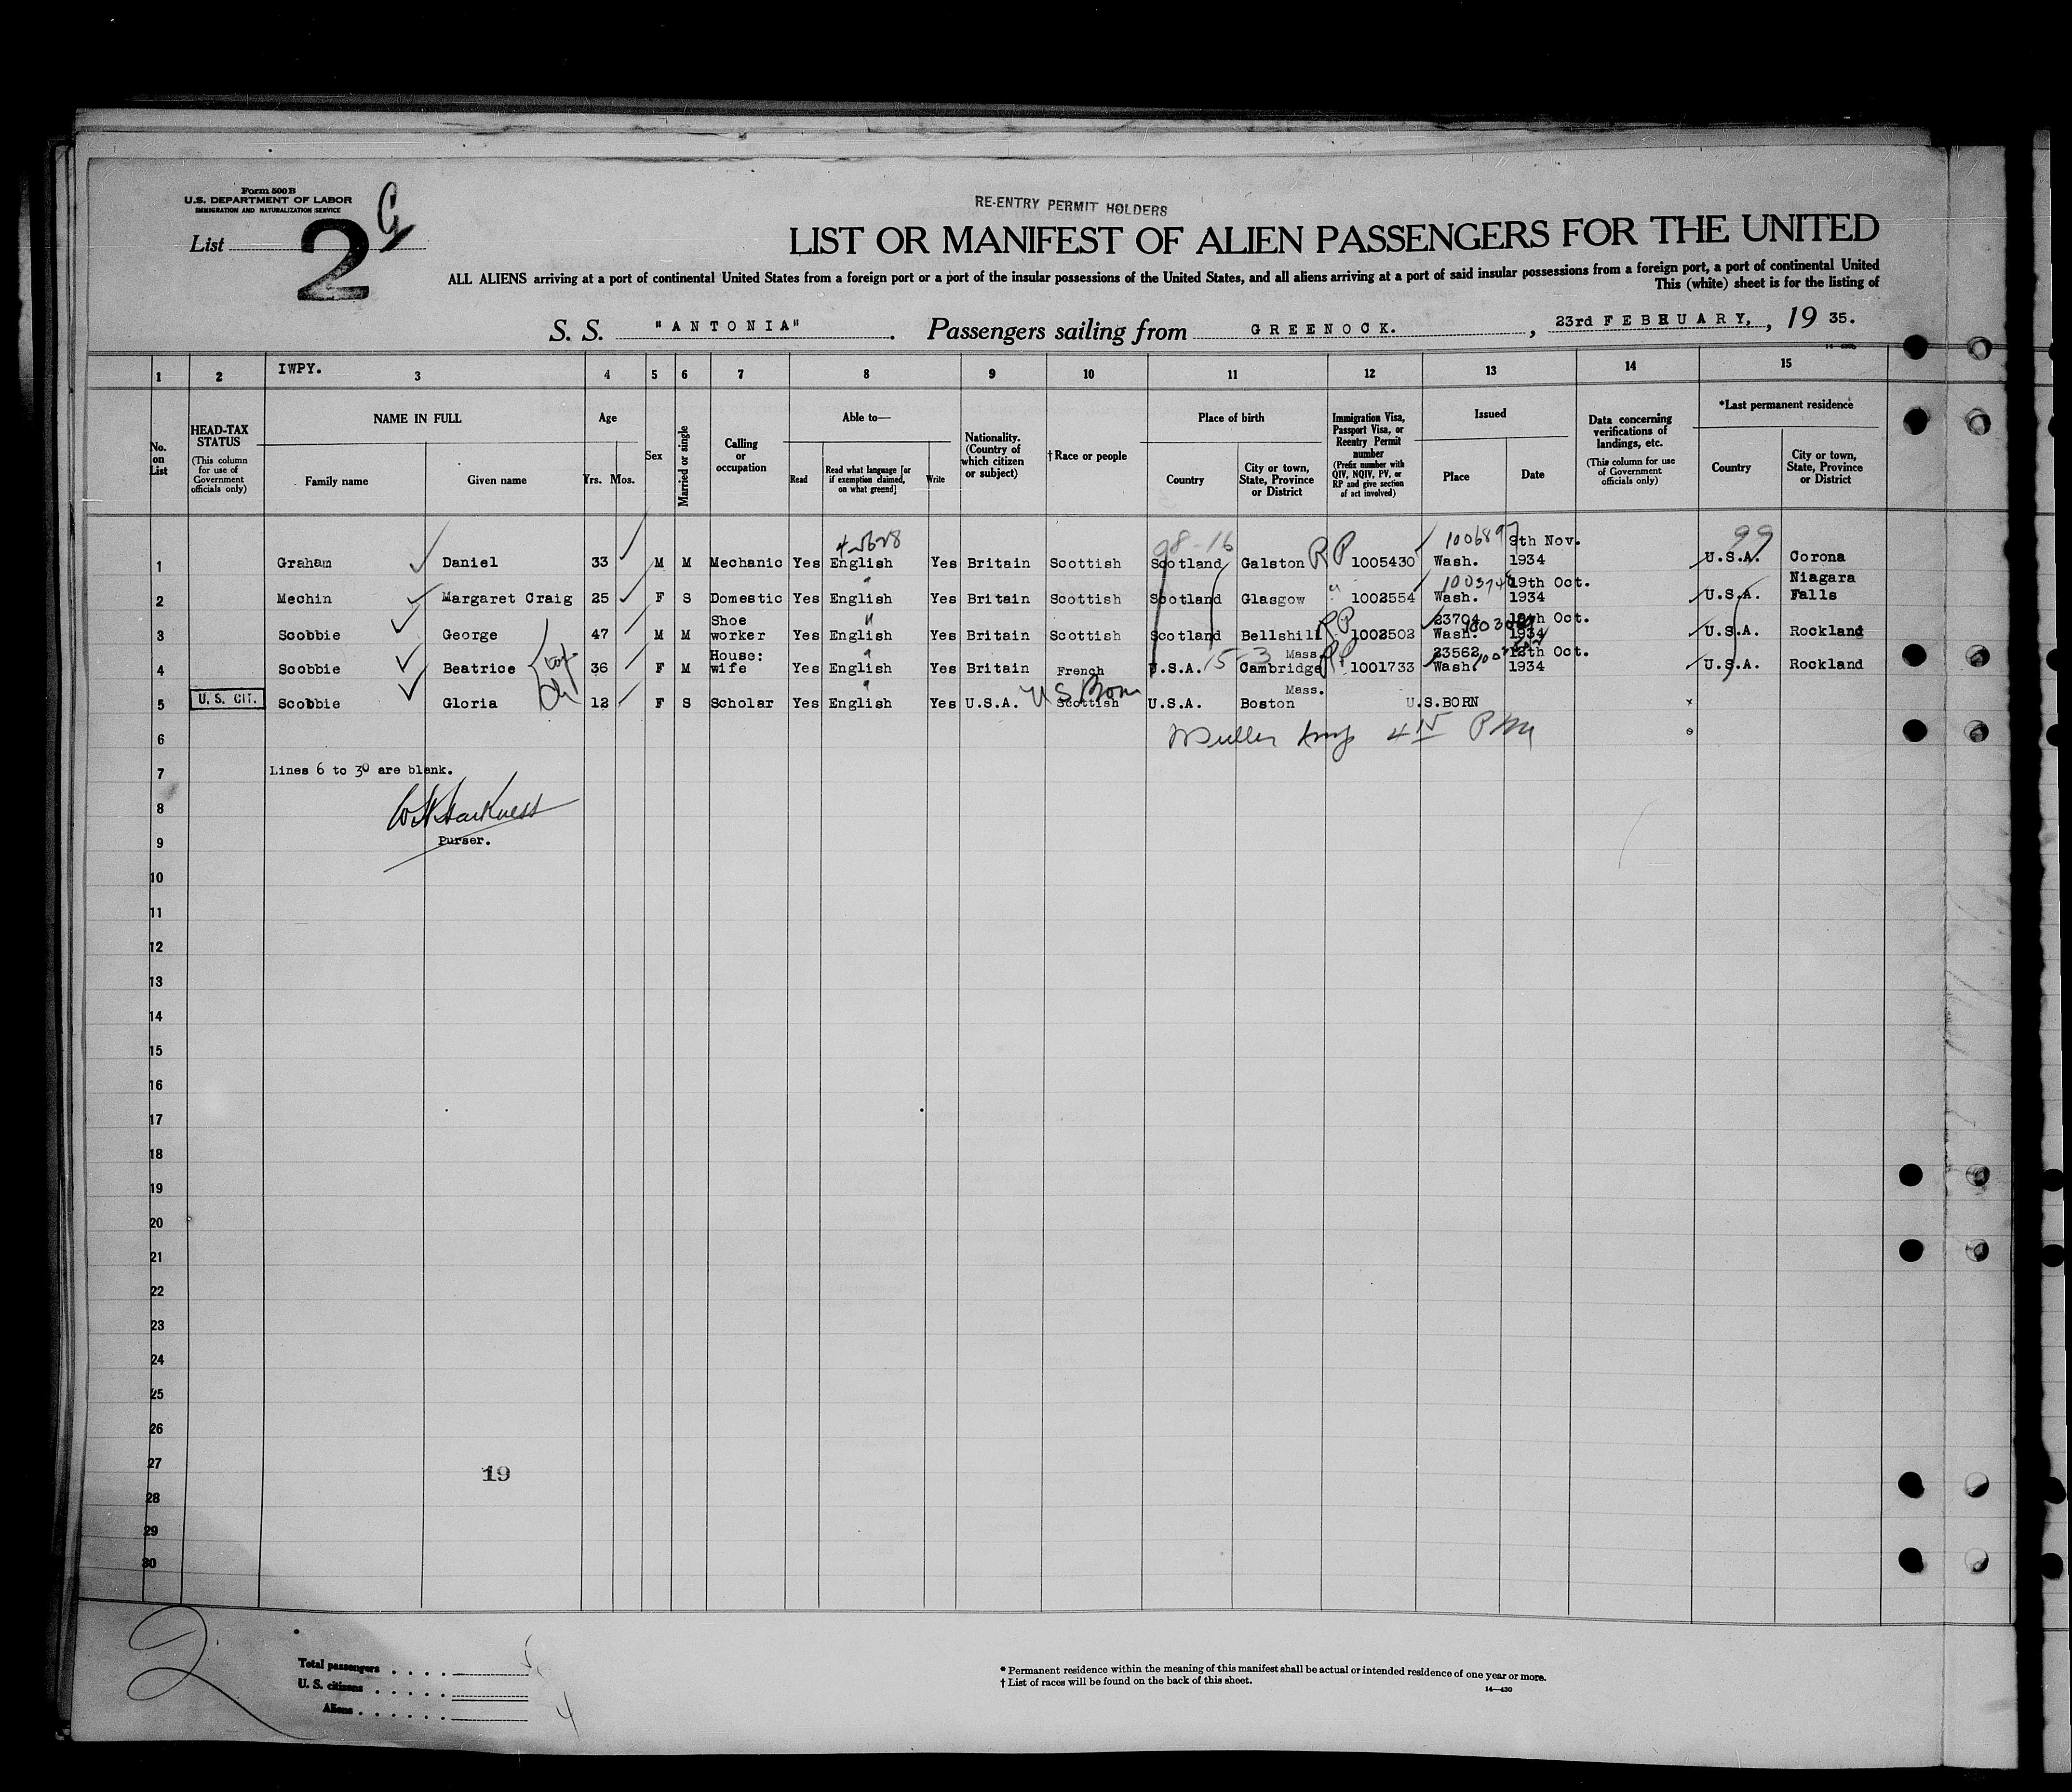 Form 500 B
U.S. DEPARTMENT OF LABOR
IMMIGRATION AND NATURALIZATION SERVICE
List 2
RE-ENTRY PERMIT HOLDERS
LIST OR MANIFEST OF ALIEN PASSENGERS FOR THE UNITED
ALL ALIENS arriving at a port of continental United States from a foreign port or a port of the insular possessions of the United States, and all aliens arriving at a port of said insular possessions from a foreign port, a port of continental United
This (white) sheet is for the listing of
S. S. "ANTONIA". Passengers sailing from GREENOCK., 23rd FEBRUARY,, 19 35.
1 2 IWPY. 3 4 5 6 7 8 9 10 11 12 13 14 15
No. on List
HEAD-TAX STATUS
(This column for use of Government officials only)
NAME IN FULL
Family name Given name
Age
Yrs. Mos.
Sex
Married or single
Calling or occupation
Able to—
Read
Read what language [or if exemption claimed, on what ground]
Write
Nationality. (Country of which citizen or subject)
†Race or people
Place of birth
Country
City or town, State, Province or District
Immigration Visa, Passport Visa, or Reentry Permit number
(Prefix number with QIV, NQIV, PV, or RP and give section of act involved)
Issued
Place Date
Data concerning verifications of landings, etc.
(This column for use of Government officials only)
*Last permanent residence
Country
City or town, State, Province or District
98-16 99
1 Graham Daniel 33 M M Mechanic Yes English Yes Britain Scottish Scotland Galston RP 1005430 Wash. 9th Nov. 1934 U.S.A. Corona
2 Mechin Margaret Craig 25 F S Domestic Yes English Yes Britain Scottish Scotland Glasgow " 1002554 Wash. 19th Oct. 1934 U.S.A. Niagara Falls
3 Scobbie George 47 M M Shoe worker Yes English Yes Britain Scottish Scotland Bellshill RP 1002502 23704 Wash. 1934 U.S.A. Rockland
4 Scobbie Beatrice 36 F M House: wife Yes English Yes Britain French U.S.A. 15-3 Mass. Cambridge RP 1001733 23562 Wash. 12th Oct. 1934 U.S.A. Rockland
5 U. S. CIT. Scobbie Gloria 12 F S Scholar Yes English Yes U.S.A. US Born Scottish U.S.A. Mass. Boston U.S.BORN x
6
7 Lines 6 to 30 are blank.
8
9 Purser.
10
11
12
13
14
15
16
17
18
19
20
21
22
23
24
25
26
27 19
28
29
30
2
Total passengers
U. S. citizens
Aliens 4
* Permanent residence within the meaning of this manifest shall be actual or intended residence of one year or more.
† List of races will be found on the back of this sheet.
14—430